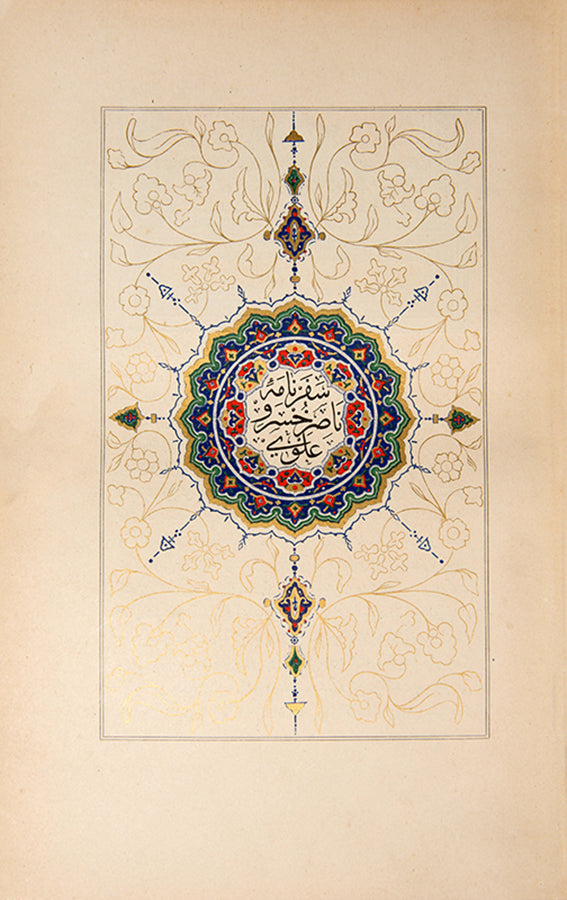 سفرنامهٔ
ناصر خسرو
علوی